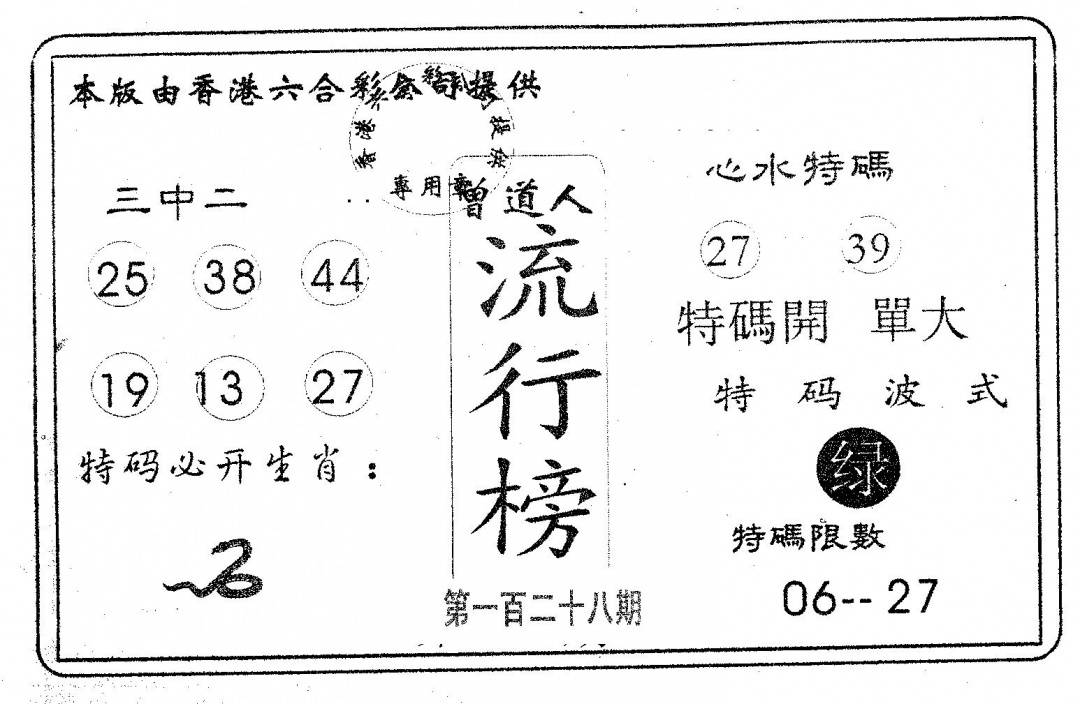 本版由香港六合彩公司提供
香港
提供
專用章
三中二
25 38 44
19 13 27
特码必开生肖：
曾道人
流行榜
第一百二十八期
心水特碼
27 39
特碼開 單大
特码波式
绿
特碼限數
06--27